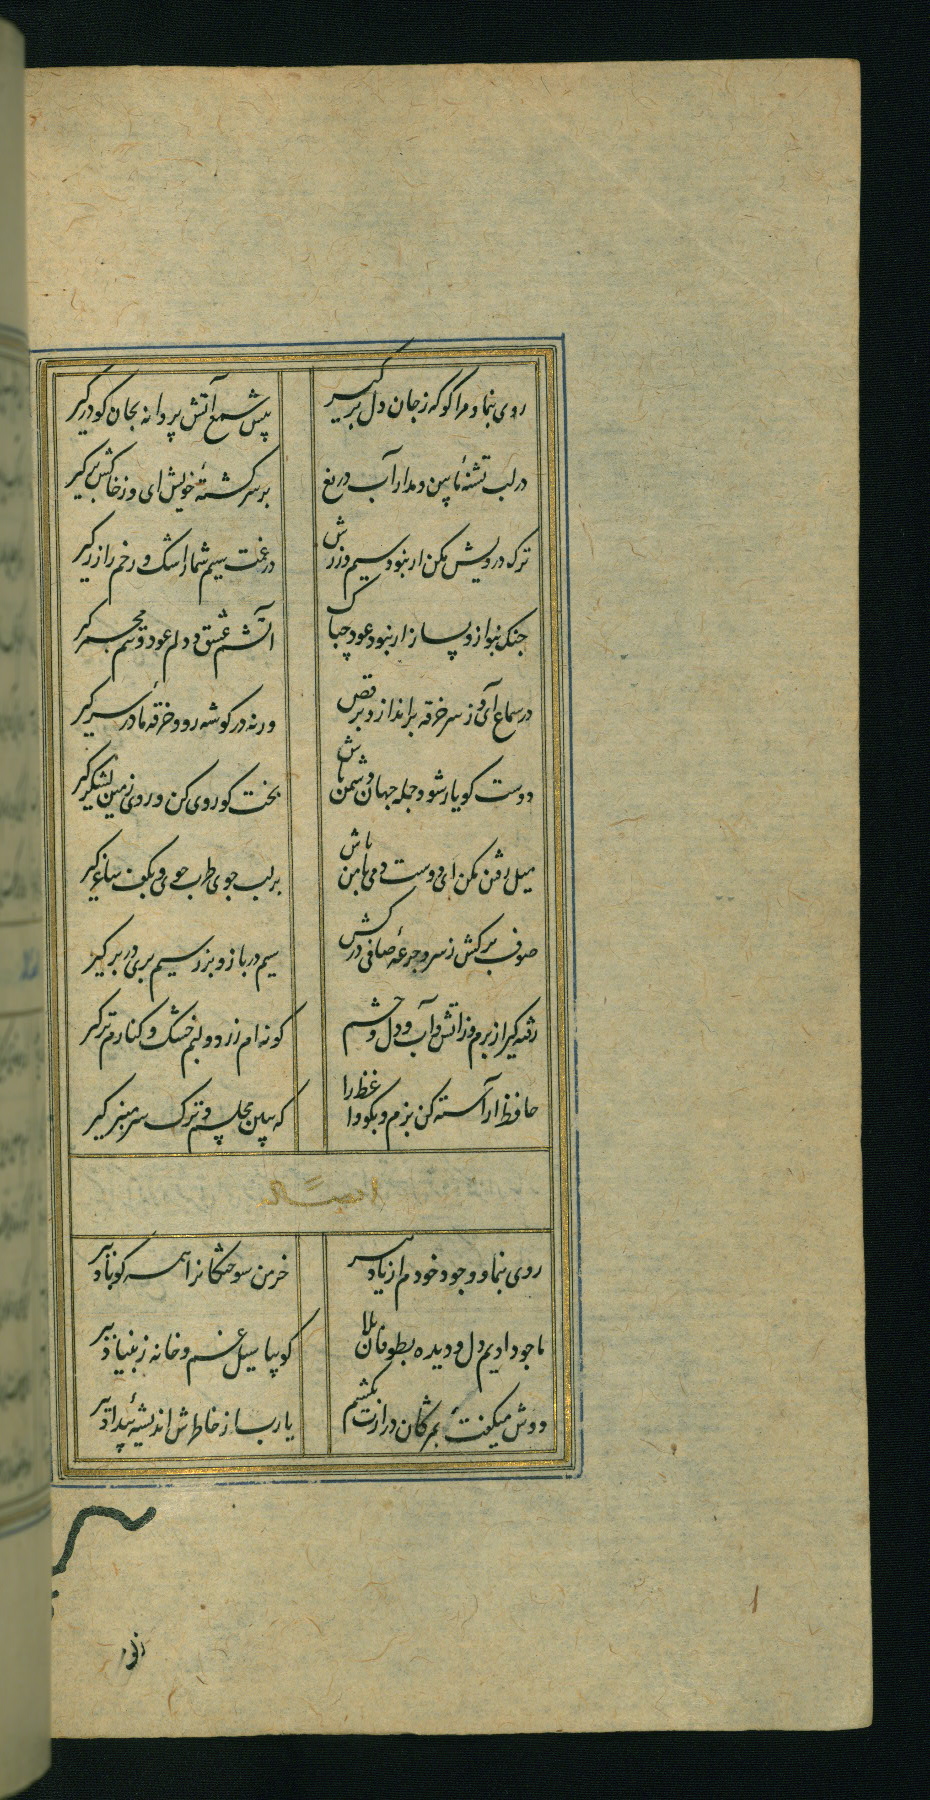 روی بنما و مرا گو که ز جان دل برگیر
پیش شمع آتش پروانه بجان گو درگیر
در لب تشنهٔ ما بین و مدار آب دریغ
بر سر کشتهٔ خویش آی و ز خاکش برگیر
ترک درویش مکن ار نبود سیم و زرش
در غمت سیم شمار اشک و رخم را زر گیر
چنگ بنواز و بساز ار نبود عود چه باک
آتشم عشق و دلم عود و تنم مجمر گیر
در سماع آی و ز سر خرقه برانداز و برقص
ورنه در گوشه رو و خرقهٔ ما در سر گیر
دوست گو یار شو و جمله جهان دشمن باش
بخت گو روی کن و روی زمین لشکر گیر
میل رفتن مکن ای دوست دمی با من باش
بر لب جوی طرب جوی و بکف ساغر گیر
صوف برکش ز سر و جرعهٔ صافی درکش
سیم درباز و بزر سیم‌بری در بر گیر
رفته گیر از برم وز آتش و آب دل و چشم
گونه‌ام زرد و لبم خشک و کنارم تر گیر
حافظ آراسته کن بزم و بگو واعظ را
که ببین مجلسم و ترک سر منبر گیر
ایضاً له
روی بنما و وجود خودم از یاد ببر
خرمن سوختگانرا همه گو باد ببر
ما چو دادیم دل و دیده بطوفان بلا
گو بیا سیل غم و خانه ز بنیاد ببر
دوش میگفت بمژگان درازت بکشم
یا رب از خاطرش اندیشهٔ بیداد ببر